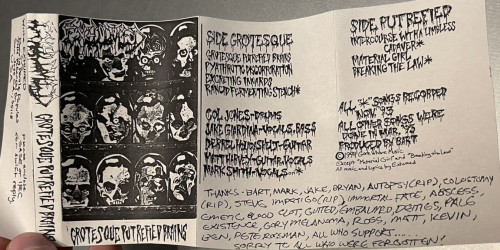 GROTESQUE PUTREFIED BRAINS
GROTESQUE PUTREFIED BRAINS
SIDE GROTESQUE
GROTESQUE PUTREFIED BRAINS
PYATHROTIC DISCORPORATION
EXCRETING INNARDS
RANCID FERMENTING STENCH*
COL JONES-DRUMS
JAKE GIARDINA-VOCALS, BASS
DERREL HOUDASHELT-GUITAR
MATT HARVEY-GUITAR, VOCALS
MARK SMITH-VOCALS...*
SIDE PUTREFIED
INTERCOURSE WITH A LIMBLESS
CADAVER*
MATERIAL GIRL*
BREAKING THE LAW*
ALL * SONGS RECORDED
NOV. '93
ALL OTHER SONGS WERE
DONE IN MAR. '93
PRODUCED BY BART
Except "Material Girl" and "Breaking the Law"
All music and lyrics by Exhumed
THANKS - BART, MARK, JAKE, BRYAN, AUTOPSY (RIP), COLOSTOMY
(RIP), STEVE, IMPETIGO (RIP), IMMORTAL FATE, ABSCESS,
GENETIC, BLOOD CLOT, GUTTED, EMBALMED, DERTIES, PALE
EXISTENCE, GORY MELANOMA, ROSS, MATT, KEVIN,
BEN, PETE ROSSMAN, ALL WHO SUPPORT....
SORRY TO ALL WHO WERE FORGOTTEN!